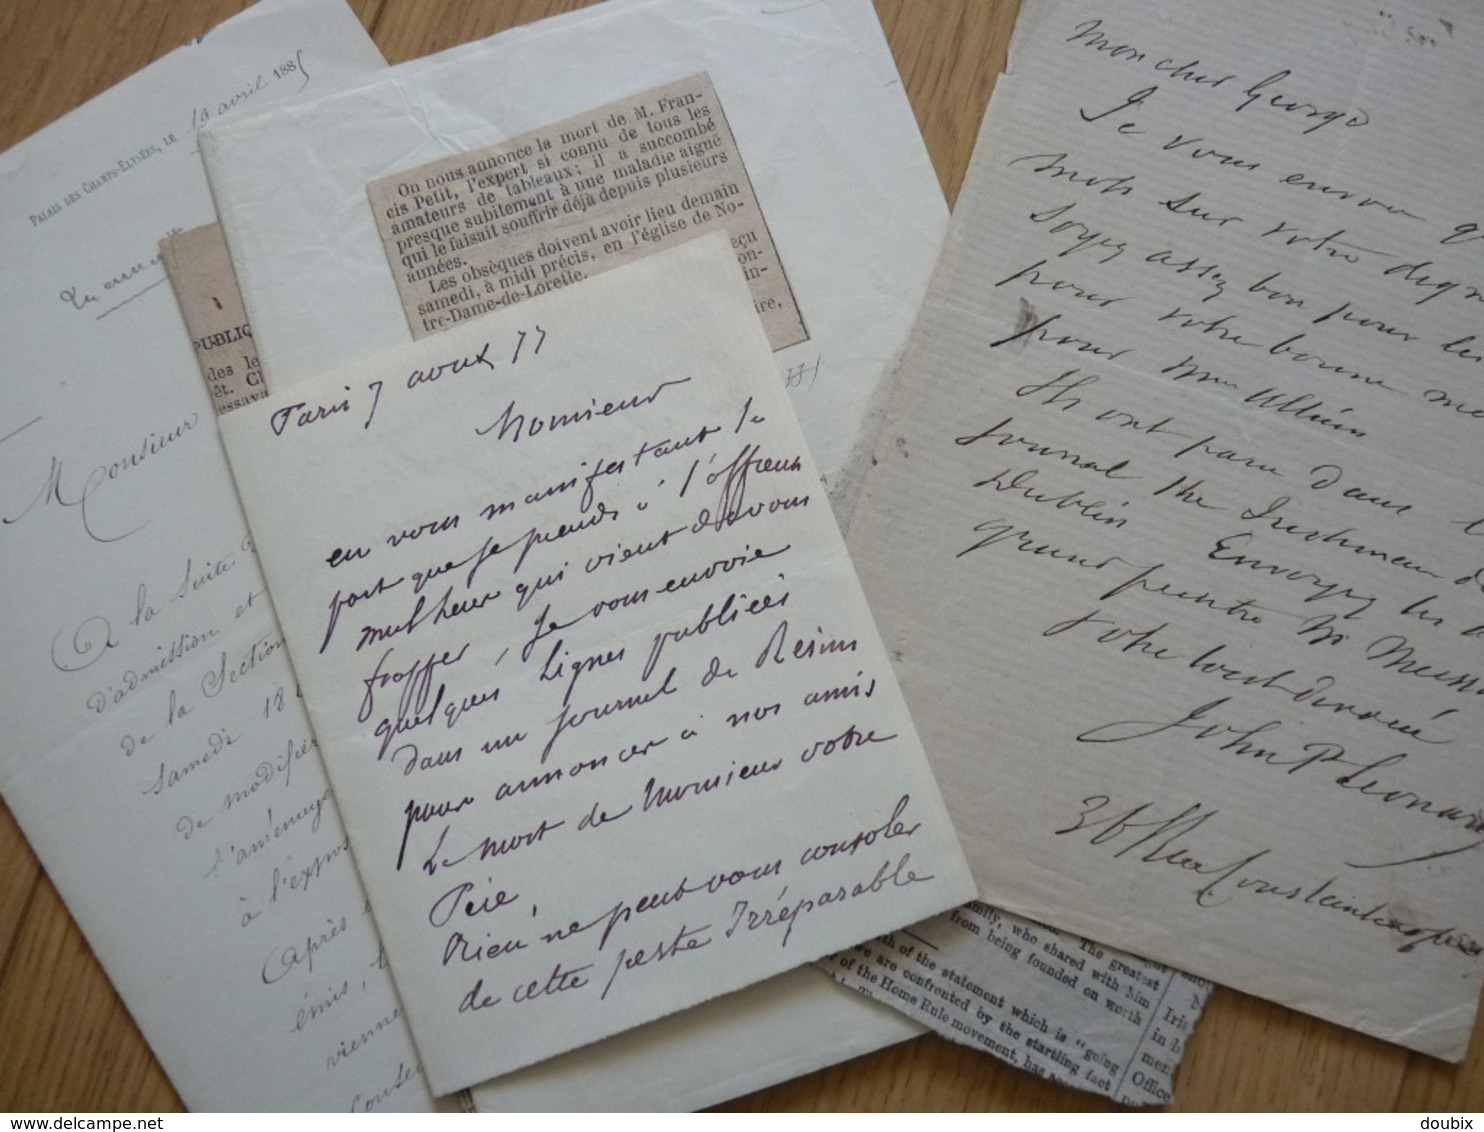 PALAIS DES CHAMPS-ÉLYSÉES, LE 19 avril 1885
Monsieur
A la suite
d'admission et
de la Section
Samedi 18
de modifier
l'aménage
à l'expos
Après
émis,
vienne
PUBLIQ
des le
êt. Ch
essaya
On nous annonce la mort de M. Fran-
cis Petit, l'expert si connu de tous les
amateurs de tableaux; il a succombé
presque subitement à une maladie aiguë
qui le faisait souffrir déjà depuis plusieurs
années.
Les obsèques doivent avoir lieu demain
samedi, à midi précis, en l'église de No-
tre-Dame-de-Lorette.
Paris 7 aout 77
Monsieur
en vous manifestant la
part que je prends à l'affreux
malheur qui vient de vous
frapper, je vous envoie
quelques lignes publiées
dans un journal de Reims
pour annoncer à nos amis
la mort de Monsieur votre
Père,
Rien ne peut vous consoler
de cette perte Irréparable
Mon cher George
Je vous envoie q
mots sur votre dign
Soyez assez bon pour les
pour votre bonne me
pour Mme
Ils ont paru dans l
journal the Irishman de
Dublin Envoyez les a
grand peintre M Meiss
Votre tout dévoué
John P Leonard
amily, who shared with him
from being founded on worth
th of the statement which is "going
we are confronted by the startling fact
of the Home Rule movement, has
The greatest
Iris
in
men
Office
doubix